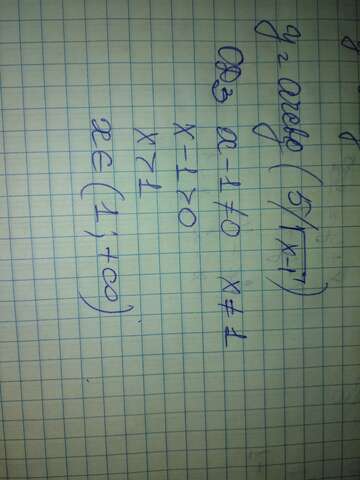 y = arctg (5/√x-1)
ОДЗ x-1≠0 x≠1
x-1>0
x>1
x∈(1;+∞)